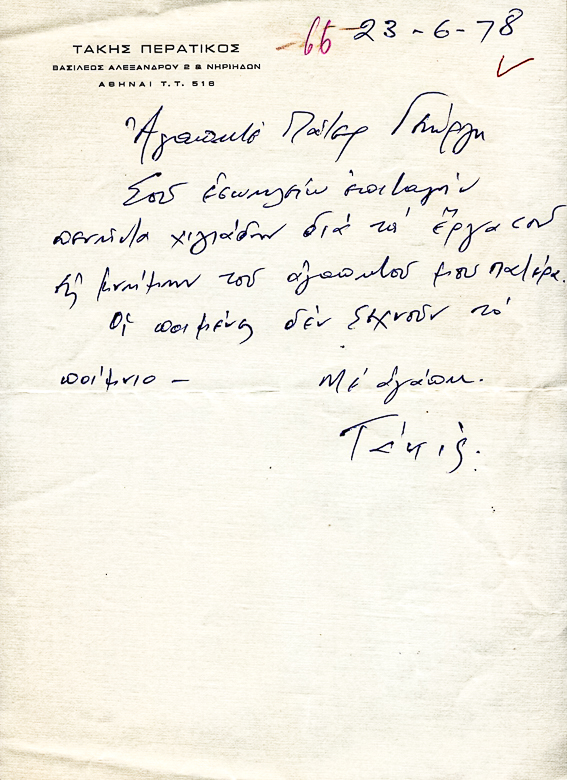 ΤΑΚΗΣ ΠΕΡΑΤΙΚΟΣ
ΒΑΣΙΛΕΩΣ ΑΛΕΞΑΝΔΡΟΥ 2 & ΝΗΡΗΙΔΩΝ
ΑΘΗΝΑΙ Τ.Τ. 516
66 23-6-78
Ἀγαπητέ Πάτερ Γεώργη
Σοῦ ἐσωκλείω ἐπιταγήν
πενῆντα χιλιάδων διά τά ἔργα σου
εἰς μνήμην τοῦ ἀγαπητοῦ μου πατέρα.
Οἱ ποιμένες δέν ξεχνοῦν τό
ποίμνιο –
Μέ ἀγάπη.
Τάκις.